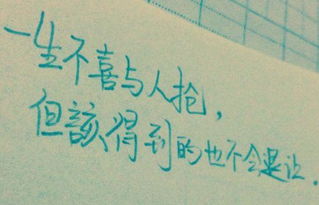 一生不喜与人抢，
但該得到的也不会退让．